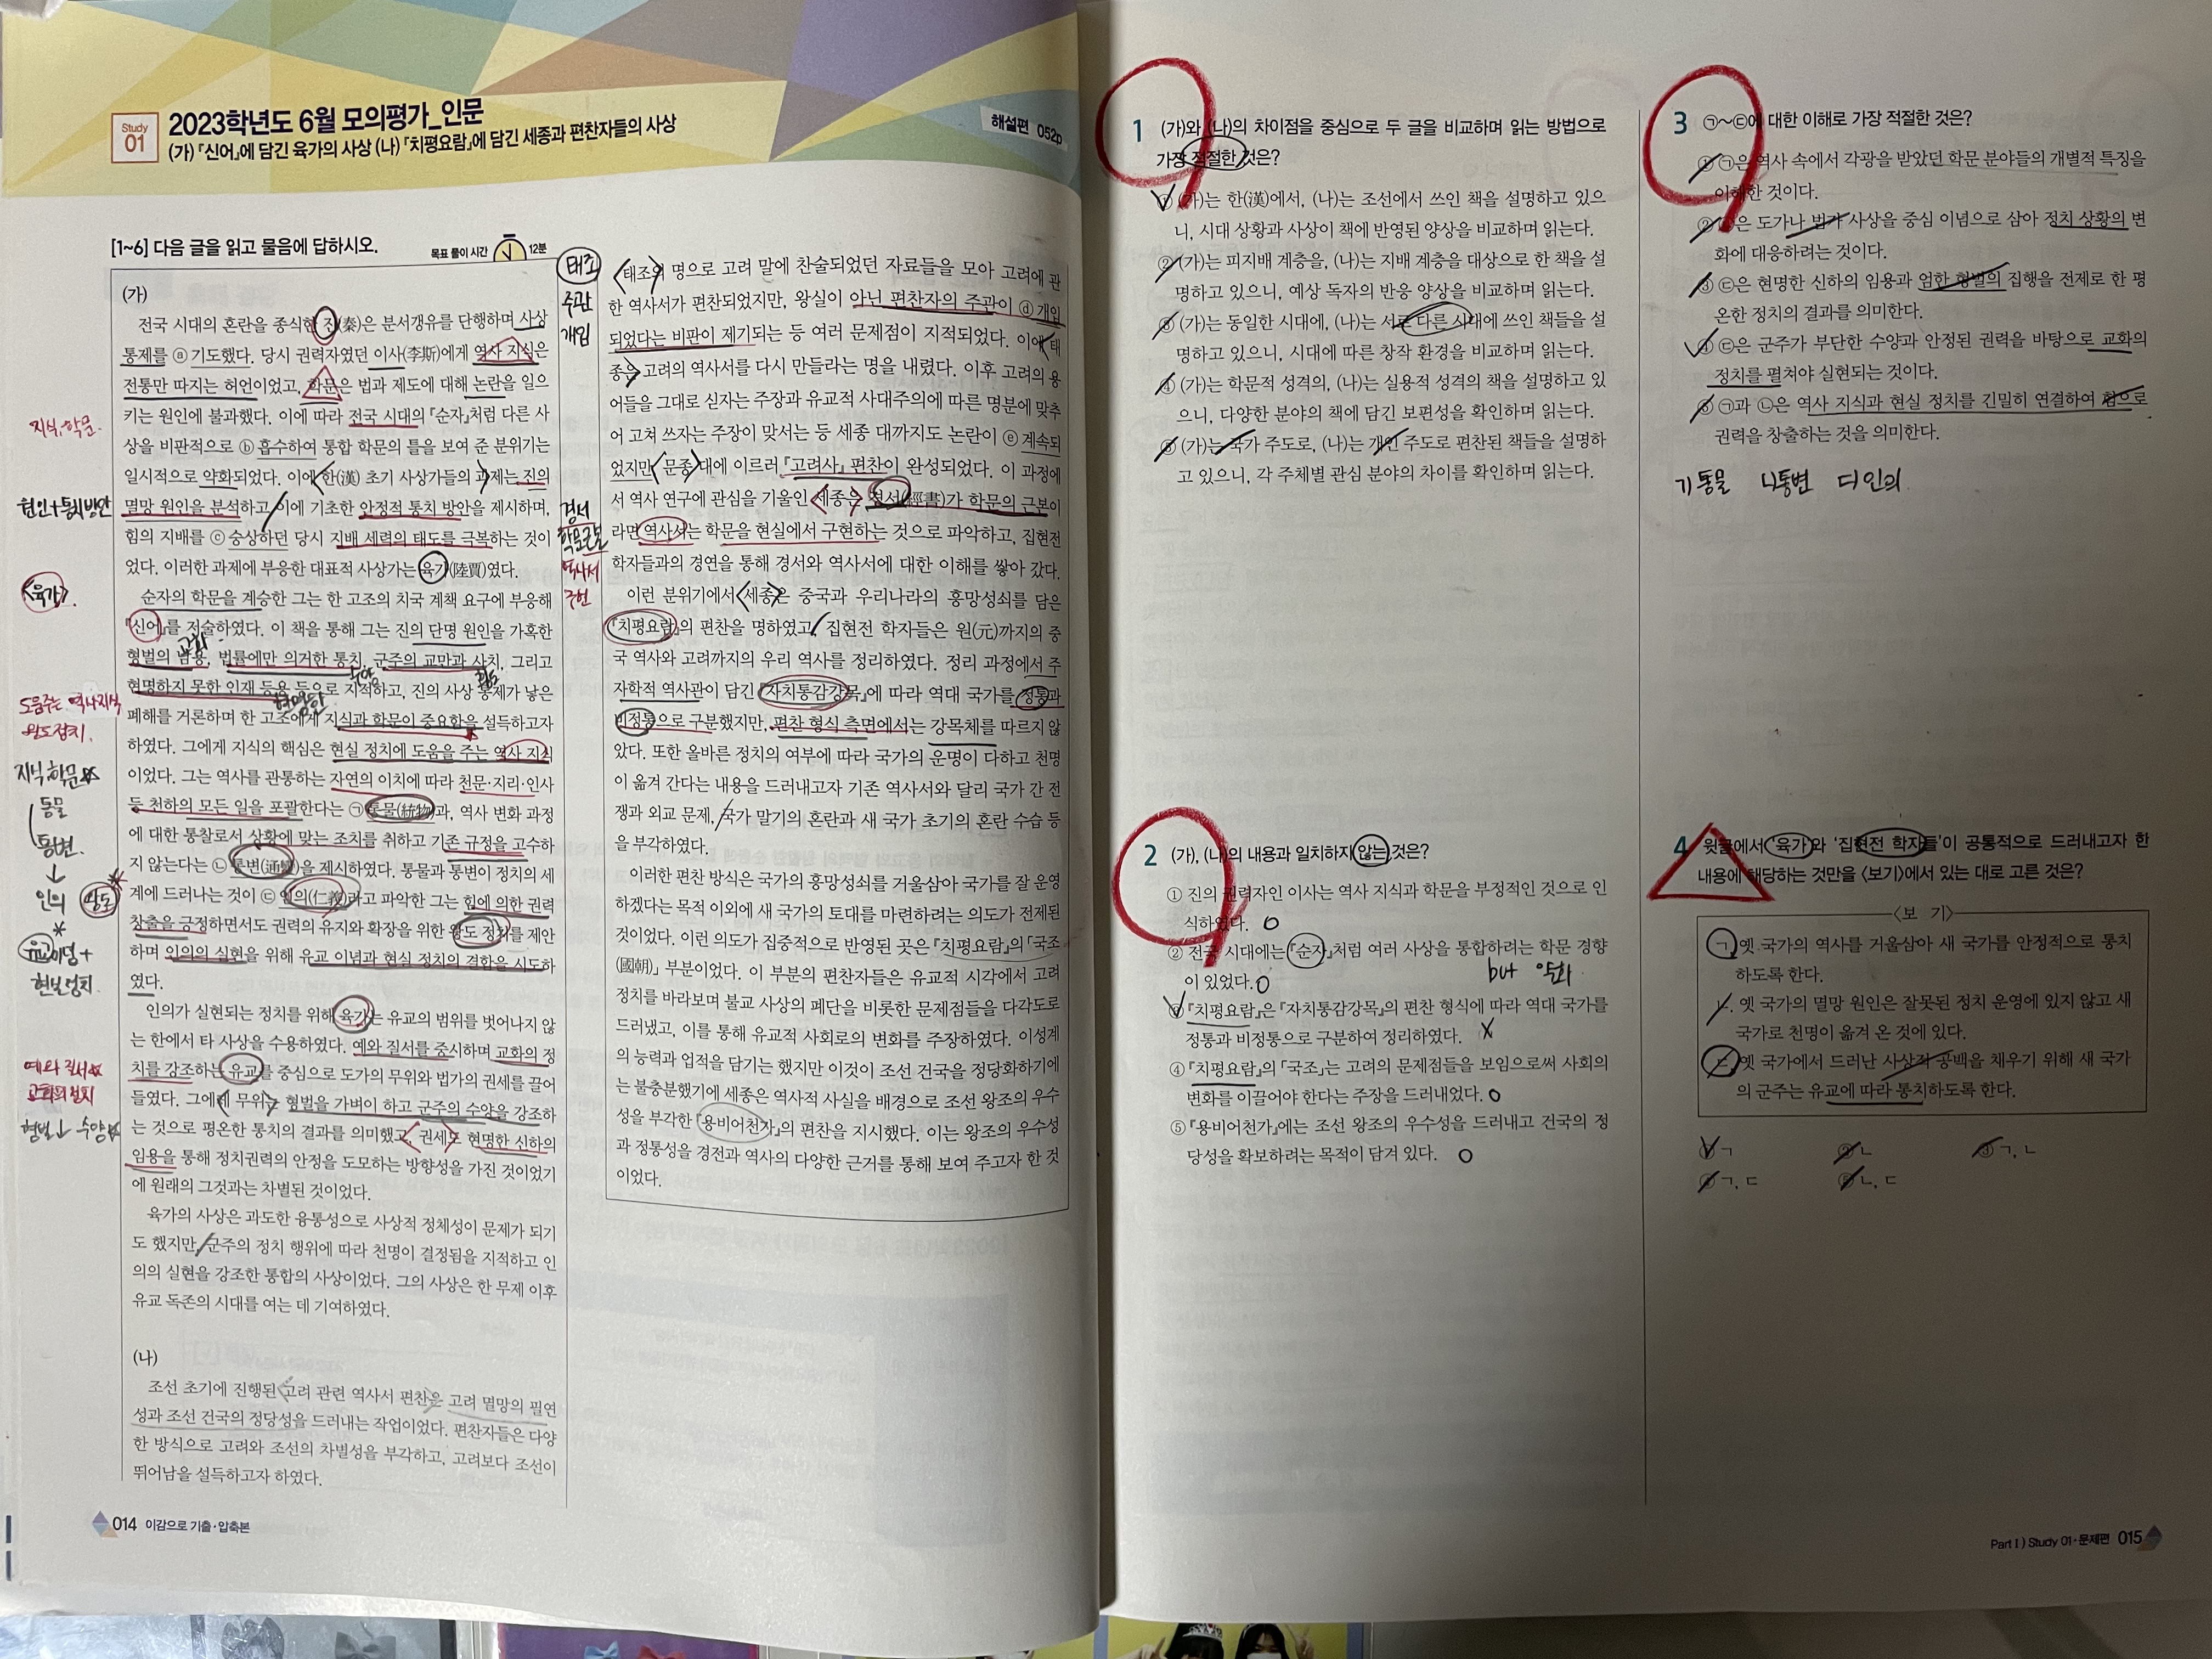 Study
01
2023학년도 6월 모의평가_인문
(가) 『신어』에 담긴 육가의 사상 (나) 『치평요람』에 담긴 세종과 편찬자들의 사상
해설편 052p
[1~6] 다음 글을 읽고 물음에 답하시오.
목표 풀이 시간 12분
(가)
전국 시대의 혼란을 종식한 진(秦)은 분서갱유를 단행하며 사상
통제를 ⓐ 기도했다. 당시 권력자였던 이사(李斯)에게 역사 지식은
전통만 따지는 허언이었고, 학문은 법과 제도에 대해 논란을 일으
키는 원인에 불과했다. 이에 따라 전국 시대의 『순자』처럼 다른 사
상을 비판적으로 ⓑ 흡수하여 통합 학문의 틀을 보여 준 분위기는
일시적으로 약화되었다. 이에 한(漢) 초기 사상가들의 과제는 진의
멸망 원인을 분석하고 이에 기초한 안정적 통치 방안을 제시하며,
힘의 지배를 ⓒ 숭상하던 당시 지배 세력의 태도를 극복하는 것이
었다. 이러한 과제에 부응한 대표적 사상가는 육가(陸賈)였다.
순자의 학문을 계승한 그는 한 고조의 치국 계책 요구에 부응해
『신어』를 저술하였다. 이 책을 통해 그는 진의 단명 원인을 가혹한
형벌의 남용, 법률에만 의거한 통치, 군주의 교만과 사치, 그리고
현명하지 못한 인재 등용 등으로 지적하고, 진의 사상 통제가 낳은
폐해를 거론하며 한 고조에게 지식과 학문이 중요함을 설득하고자
하였다. 그에게 지식의 핵심은 현실 정치에 도움을 주는 역사 지식
이었다. 그는 역사를 관통하는 자연의 이치에 따라 천문·지리·인사
등 천하의 모든 일을 포괄한다는 ㉠ 통물(統物)과, 역사 변화 과정
에 대한 통찰로서 상황에 맞는 조치를 취하고 기존 규정을 고수하
지 않는다는 ㉡ 통변(通變)을 제시하였다. 통물과 통변이 정치의 세
계에 드러나는 것이 ㉢ 인의(仁義)라고 파악한 그는 힘에 의한 권력
창출을 긍정하면서도 권력의 유지와 확장을 위한 왕도 정치를 제안
하며 인의의 실현을 위해 유교 이념과 현실 정치의 결합을 시도하
였다.
인의가 실현되는 정치를 위해 육가는 유교의 범위를 벗어나지 않
는 한에서 타 사상을 수용하였다. 예와 질서를 중시하며 교화의 정
치를 강조하는 유교를 중심으로 도가의 무위와 법가의 권세를 끌어
들였다. 그에게 무위는 형벌을 가벼이 하고 군주의 수양을 강조하
는 것으로 평온한 통치의 결과를 의미했고, 권세도 현명한 신하의
임용을 통해 정치권력의 안정을 도모하는 방향성을 가진 것이었기
에 원래의 그것과는 차별된 것이었다.
육가의 사상은 과도한 융통성으로 사상적 정체성이 문제가 되기
도 했지만, 군주의 정치 행위에 따라 천명이 결정됨을 지적하고 인
의의 실현을 강조한 통합의 사상이었다. 그의 사상은 한 무제 이후
유교 독존의 시대를 여는 데 기여하였다.
(나)
조선 초기에 진행된 고려 관련 역사서 편찬은 고려 멸망의 필연
성과 조선 건국의 정당성을 드러내는 작업이었다. 편찬자들은 다양
한 방식으로 고려와 조선의 차별성을 부각하고, 고려보다 조선이
뛰어남을 설득하고자 하였다.
지식, 학문
원인+통치방안
<육가>.
교화
수양
현명한
도움주는 역사지식
왕도정치.
지식, 학문
통물
통변
인의 왕도
유교이념+
현실정치.
예와 질서
교화의 정치
형벌↓ 수양
014 이감으로 기출·압축본
태조
주관
개입
경서
학문근본
역사서
구현
태조의 명으로 고려 말에 찬술되었던 자료들을 모아 고려에 관
한 역사서가 편찬되었지만, 왕실이 아닌 편찬자의 주관이 ⓓ 개입
되었다는 비판이 제기되는 등 여러 문제점이 지적되었다. 이에 태
종은 고려의 역사서를 다시 만들라는 명을 내렸다. 이후 고려의 용
어들을 그대로 싣자는 주장과 유교적 사대주의에 따른 명분에 맞추
어 고쳐 쓰자는 주장이 맞서는 등 세종 대까지도 논란이 ⓔ 계속되
었지만, 문종 대에 이르러 『고려사』 편찬이 완성되었다. 이 과정에
서 역사 연구에 관심을 기울인 세종은 경서(經書)가 학문의 근본이
라면 역사서는 학문을 현실에서 구현하는 것으로 파악하고, 집현전
학자들과의 경연을 통해 경서와 역사서에 대한 이해를 쌓아 갔다.
이런 분위기에서 세종은 중국과 우리나라의 흥망성쇠를 담은
『치평요람』의 편찬을 명하였고, 집현전 학자들은 원(元)까지의 중
국 역사와 고려까지의 우리 역사를 정리하였다. 정리 과정에서 주
자학적 역사관이 담긴 『자치통감강목』에 따라 역대 국가를 정통과
비정통으로 구분했지만, 편찬 형식 측면에서는 강목체를 따르지 않
았다. 또한 올바른 정치의 여부에 따라 국가의 운명이 다하고 천명
이 옮겨 간다는 내용을 드러내고자 기존 역사서와 달리 국가 간 전
쟁과 외교 문제, 국가 말기의 혼란과 새 국가 초기의 혼란 수습 등
을 부각하였다.
이러한 편찬 방식은 국가의 흥망성쇠를 거울삼아 국가를 잘 운영
하겠다는 목적 이외에 새 국가의 토대를 마련하려는 의도가 전제된
것이었다. 이런 의도가 집중적으로 반영된 곳은 『치평요람』의 「국조
(國朝)」 부분이었다. 이 부분의 편찬자들은 유교적 시각에서 고려
정치를 바라보며 불교 사상의 폐단을 비롯한 문제점들을 다각도로
드러냈고, 이를 통해 유교적 사회로의 변화를 주장하였다. 이성계
의 능력과 업적을 담기는 했지만 이것이 조선 건국을 정당화하기에
는 불충분했기에 세종은 역사적 사실을 배경으로 조선 왕조의 우수
성을 부각한 『용비어천가』의 편찬을 지시했다. 이는 왕조의 우수성
과 정통성을 경전과 역사의 다양한 근거를 통해 보여 주고자 한 것
이었다.
1 (가)와 (나)의 차이점을 중심으로 두 글을 비교하며 읽는 방법으로
가장 적절한 것은?
① (가)는 한(漢)에서, (나)는 조선에서 쓰인 책을 설명하고 있으
니, 시대 상황과 사상이 책에 반영된 양상을 비교하며 읽는다.
② (가)는 피지배 계층을, (나)는 지배 계층을 대상으로 한 책을 설
명하고 있으니, 예상 독자의 반응 양상을 비교하며 읽는다.
③ (가)는 동일한 시대에, (나)는 서로 다른 시대에 쓰인 책들을 설
명하고 있으니, 시대에 따른 창작 환경을 비교하며 읽는다.
④ (가)는 학문적 성격의, (나)는 실용적 성격의 책을 설명하고 있
으니, 다양한 분야의 책에 담긴 보편성을 확인하며 읽는다.
⑤ (가)는 국가 주도로, (나)는 개인 주도로 편찬된 책들을 설명하
고 있으니, 각 주체별 관심 분야의 차이를 확인하며 읽는다.
2 (가), (나)의 내용과 일치하지 않는 것은?
① 진의 권력자인 이사는 역사 지식과 학문을 부정적인 것으로 인
식하였다. O
② 전국 시대에는 『순자』처럼 여러 사상을 통합하려는 학문 경향
이 있었다. O but 약화
③ 『치평요람』은 『자치통감강목』의 편찬 형식에 따라 역대 국가를
정통과 비정통으로 구분하여 정리하였다. X
④ 『치평요람』의 「국조」는 고려의 문제점들을 보임으로써 사회의
변화를 이끌어야 한다는 주장을 드러내었다. O
⑤ 『용비어천가』에는 조선 왕조의 우수성을 드러내고 건국의 정
당성을 확보하려는 목적이 담겨 있다. O
3 ㉠~㉢에 대한 이해로 가장 적절한 것은?
① ㉠은 역사 속에서 각광을 받았던 학문 분야들의 개별적 특징을
이해한 것이다.
② ㉡은 도가나 법가 사상을 중심 이념으로 삼아 정치 상황의 변
화에 대응하려는 것이다.
③ ㉢은 현명한 신하의 임용과 엄한 형벌의 집행을 전제로 한 평
온한 정치의 결과를 의미한다.
④ ㉢은 군주가 부단한 수양과 안정된 권력을 바탕으로 교화의
정치를 펼쳐야 실현되는 것이다.
⑤ ㉠과 ㉡은 역사 지식과 현실 정치를 긴밀히 연결하여 힘으로
권력을 창출하는 것을 의미한다.
ㄱ 통물 ㄴ 통변 ㄷ 인의
4 윗글에서 '육가'와 '집현전 학자들'이 공통적으로 드러내고자 한
내용에 해당하는 것만을 <보기>에서 있는 대로 고른 것은?
<보 기>
ㄱ. 옛 국가의 역사를 거울삼아 새 국가를 안정적으로 통치
하도록 한다.
ㄴ. 옛 국가의 멸망 원인은 잘못된 정치 운영에 있지 않고 새
국가로 천명이 옮겨 온 것에 있다.
ㄷ. 옛 국가에서 드러난 사상적 공백을 채우기 위해 새 국가
의 군주는 유교에 따라 통치하도록 한다.
① ㄱ ② ㄴ ③ ㄱ, ㄴ
④ ㄱ, ㄷ ⑤ ㄴ, ㄷ
Part I ) Study 01·문제편 015